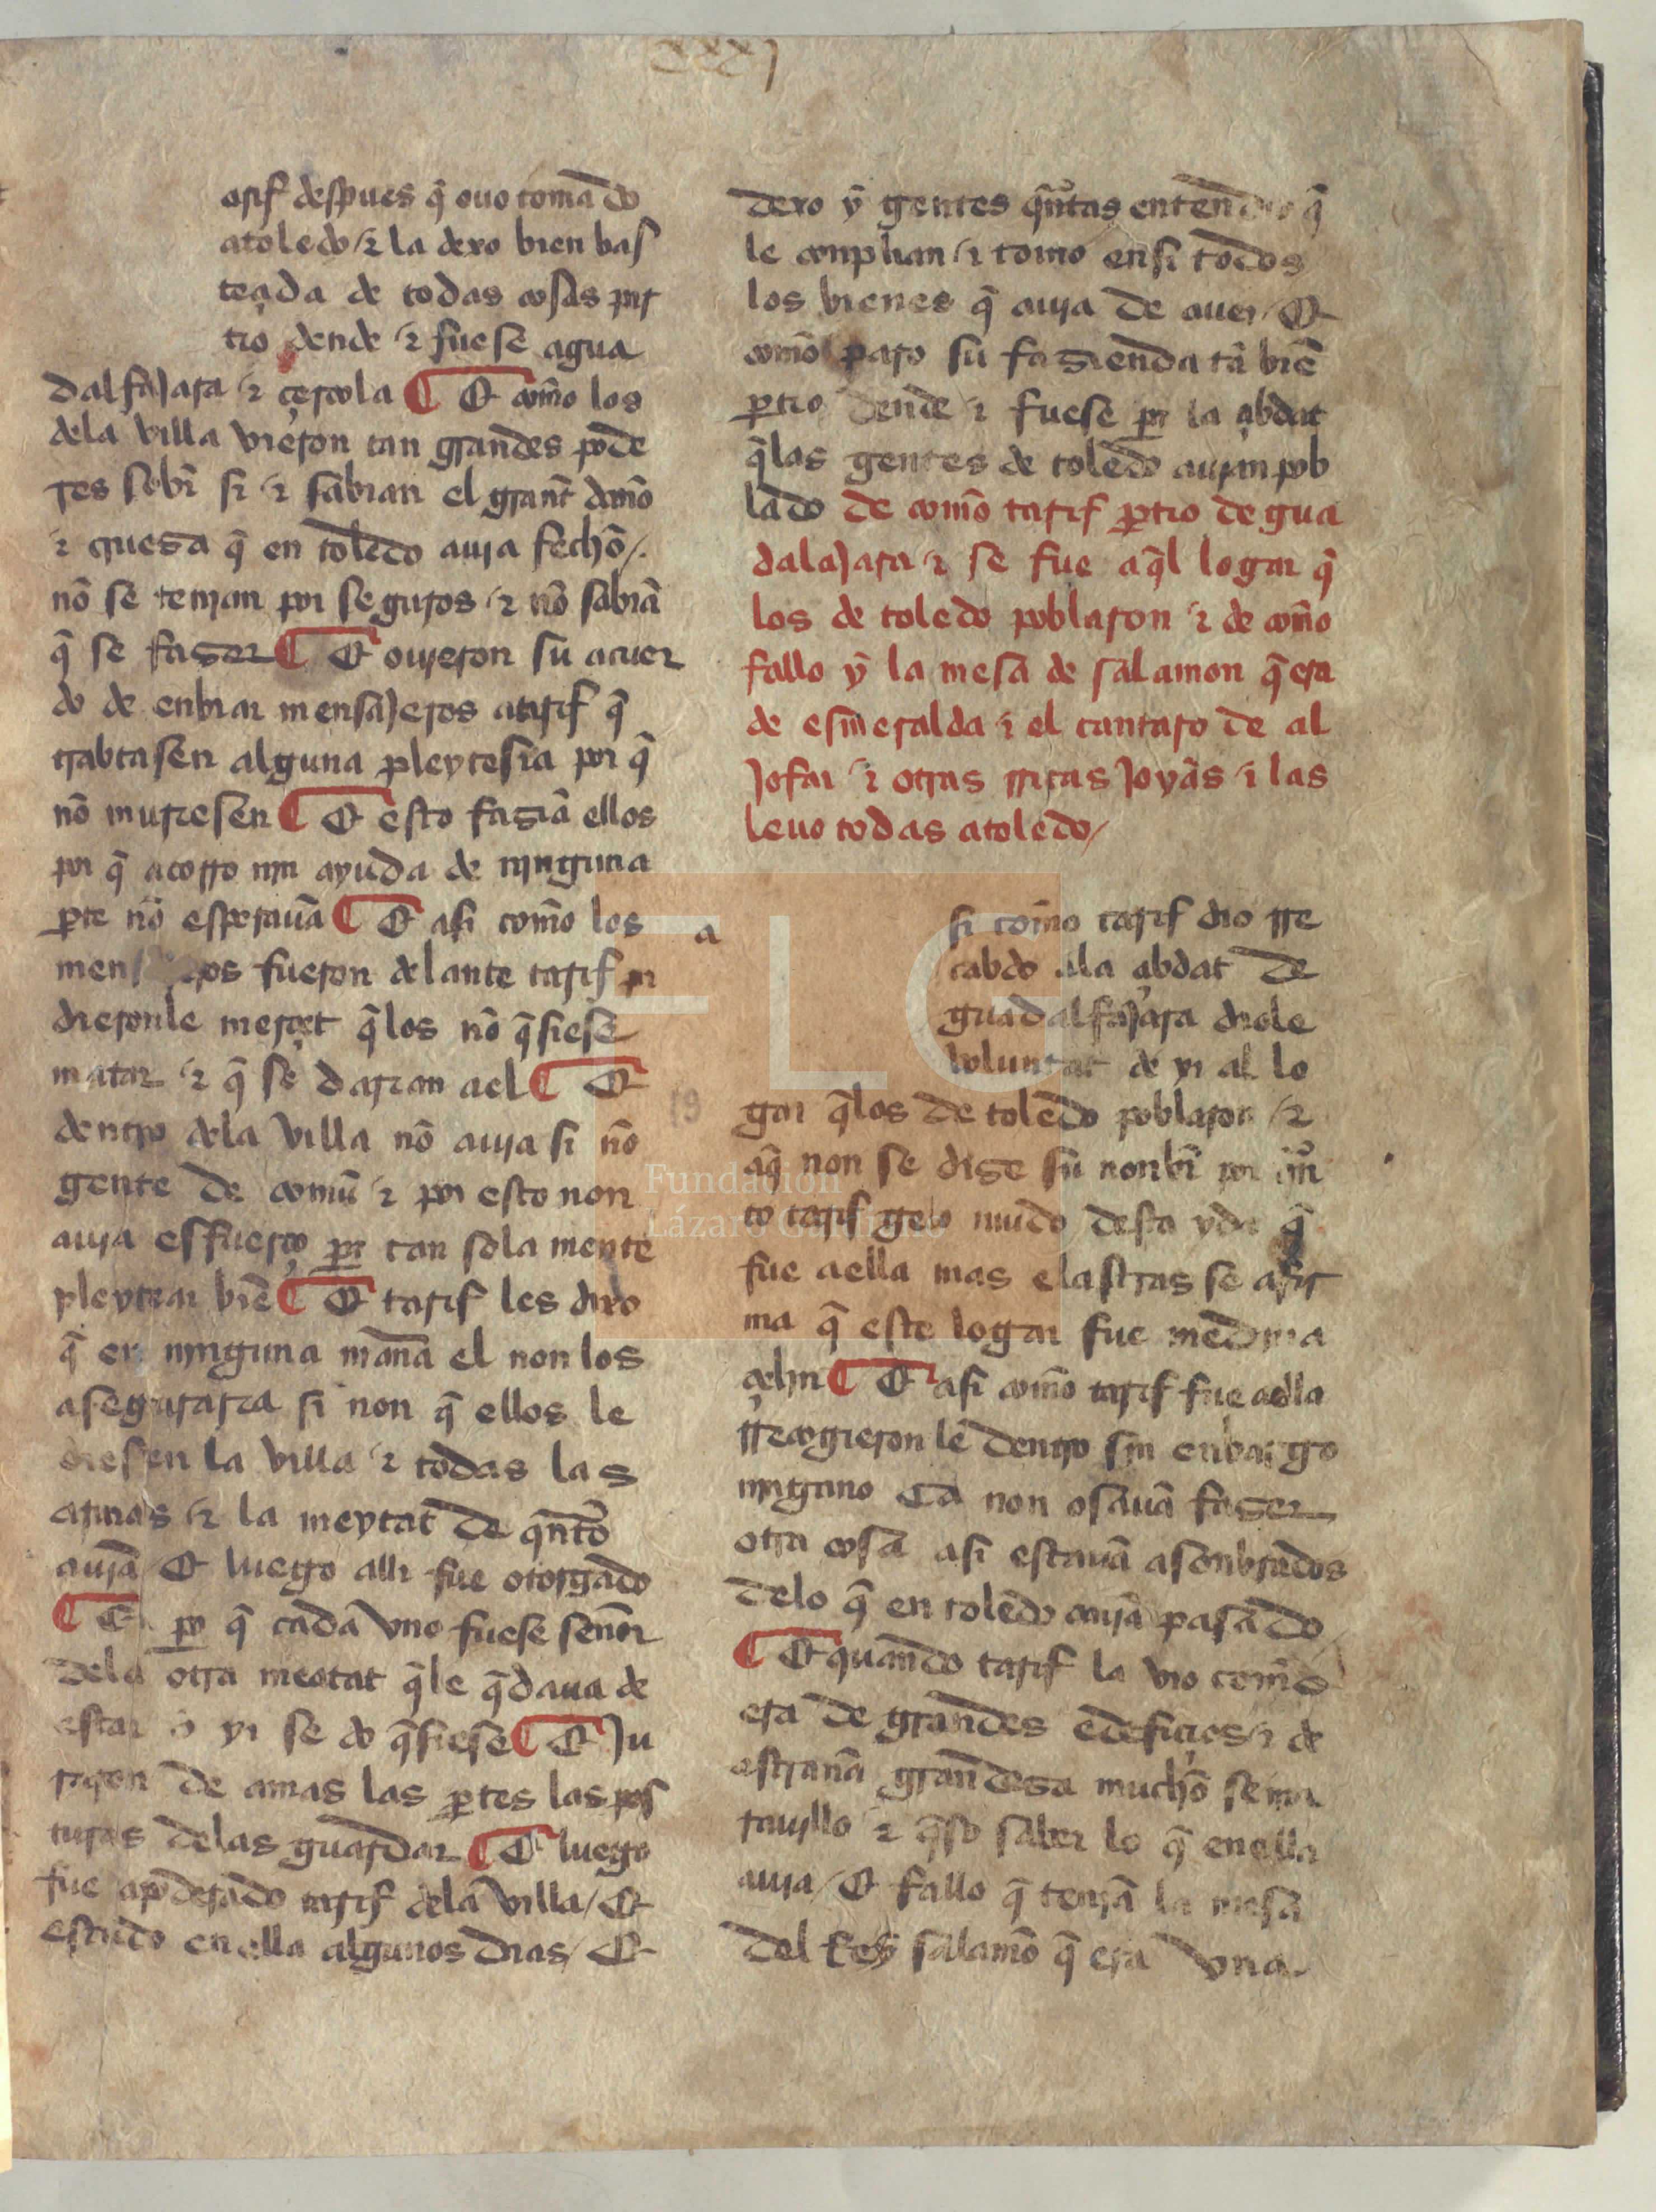 xxxj
arif despues q̃ ouo tomado
a toledo ⁊ la dexo bien bas
teçida de todas cosas par
tio dende ⁊ fuese a gua
dalfajara ⁊ çercola ¶ Et com̃o los
dela villa vieron tan grandes pode
res sobr̃ si ⁊ sabian el grant dan̄o
⁊ crueza q̃ en toledo auja fecho
nõ se tenjan por seguros ⁊ nõ sabiã
q̃ se fazer ¶ Et oujeron su acuer
do de enbiar mensajeros a tarif q̃
trabtasen alguna pleytesia por q̃
nõ muriesen ¶ Et esto faziã ellos
por q̃ acorro njn ayuda de njnguna
ꝑte nõ esperauã ¶ Et asi com̃o los
fueron delante tarif
dieronle merçet q̃ los nõ q̃siese
matar ⁊ q̃ se darian a el ¶ Et
dentro dela villa nõ auja si nõ
gente de comũ ⁊ por esto non
auja esfuerço ꝑa tan sola mente
pleytear biẽ ¶ Et tarif les dixo
q̃ en njnguna man̄a el non los
aseguraria si non q̃ ellos le
diesen la villa ⁊ todas las
armas ⁊ la meytat de q̃nto
aujã Et luego alli fue otorgado
¶ Et ꝑo q̃ cada vno fuese sen̄or
dela otra meatat q̃ le q̃daua de
estar o yr se do q̃siese ¶ Et Ju
raron de amas las ꝑtes las pos
turas delas guardar ¶ Et luego
fue apoderado tarif dela villa / Et
estudo en ella algunos dias / Et
dexo y gentes q̃ntas entendio q̃
le conplian ⁊ tomo en si todos
los bienes q̃ auja de auer / Et
com̃o paro su fazienda tã biẽ
ꝑtio dende ⁊ fuese ꝑa la çibdat
q̃ las gentes de toledo aujan pob
lado de com̃o tarif ꝑtio de gua
dalajara ⁊ se fue aq̃l logar q̃
los de toledo poblaron ⁊ de com̃o
fallo y la mesa de salamon q̃ era
de esmeralda ⁊ el cantaro de al
jofar ⁊ otras rricas joyas ⁊ las
leuo todas a toledo /
a
si com̃o tarif dio rre
cabdo ala çibdat de
guadalfajara diole
voluntat de yr al lo
gar q̃ los de toledo poblaron ⁊
aq̃ non se dize su nonbr̃ por q̃n
to tarif gelo mudo desta yda q̃
fue a ella mas elastras se afir
ma q̃ este logar fue medina
çelin ¶ Et asi com̃o tarif fue a ella
rrecogieron le dentro sin enbargo
njnguno Ca non osauã fazer
otra cosa asi estauã asonbrados
delo q̃ en toledo aujã pasado
¶ Et quando tarif la vio com̃o
era de grandes edefiçios ⁊ de
estran̄a grandeza mucho se ma
rauillo ⁊ q̃so saber lo q̃ en ella
auja / Et fallo q̃ tenjã la mesa
del Rey salamõ q̃ era vna
19
FLG
Fundación
Lázaro Galdiano